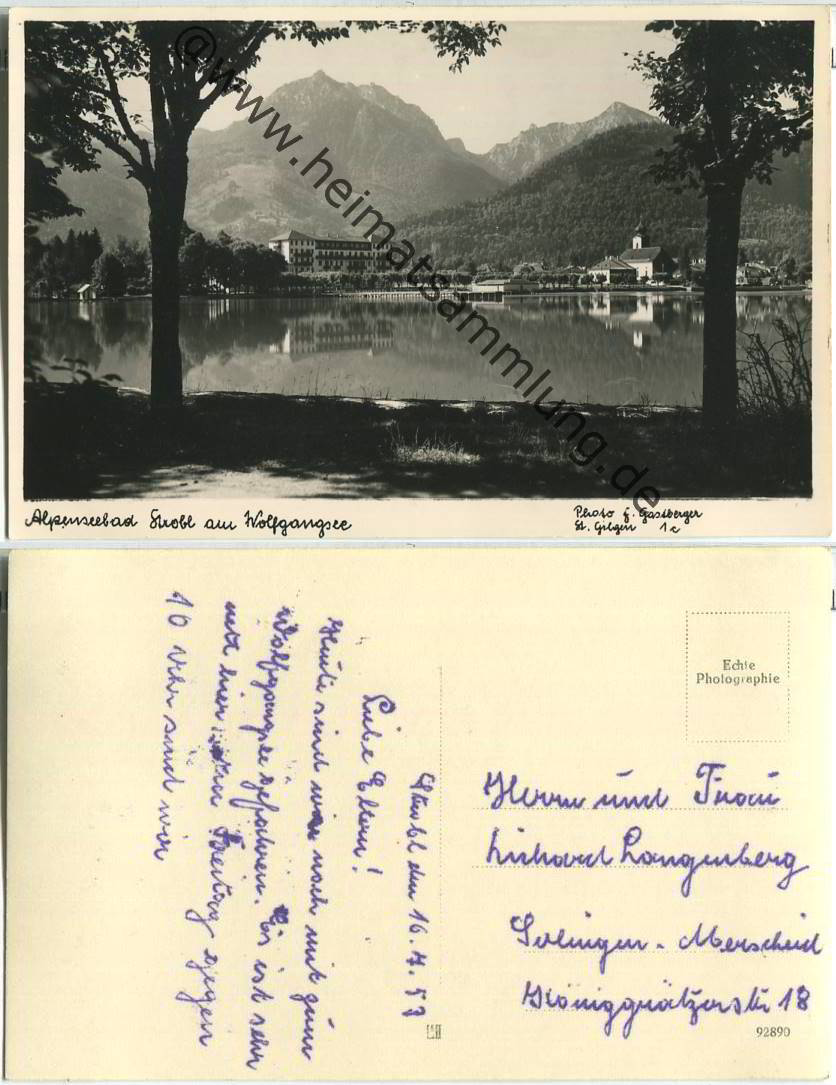 @www.heimatsammlung.de
Alpenseebad Strobl am Wolfgangsee
Photo J. Gastberger
St. Gilgen 1c
Strobl den 16.7.53
Liebe Eltern!
Heute sind wir noch mit zum
Wolfgangsee gefahren. Es ist sehr
nett hier. Freitag gegen
10 Uhr sind wir
Echte
Photographie
Herrn und Frau
Richard Langenberg
Solingen-Merscheid
Königgrätzerstr 18
92890